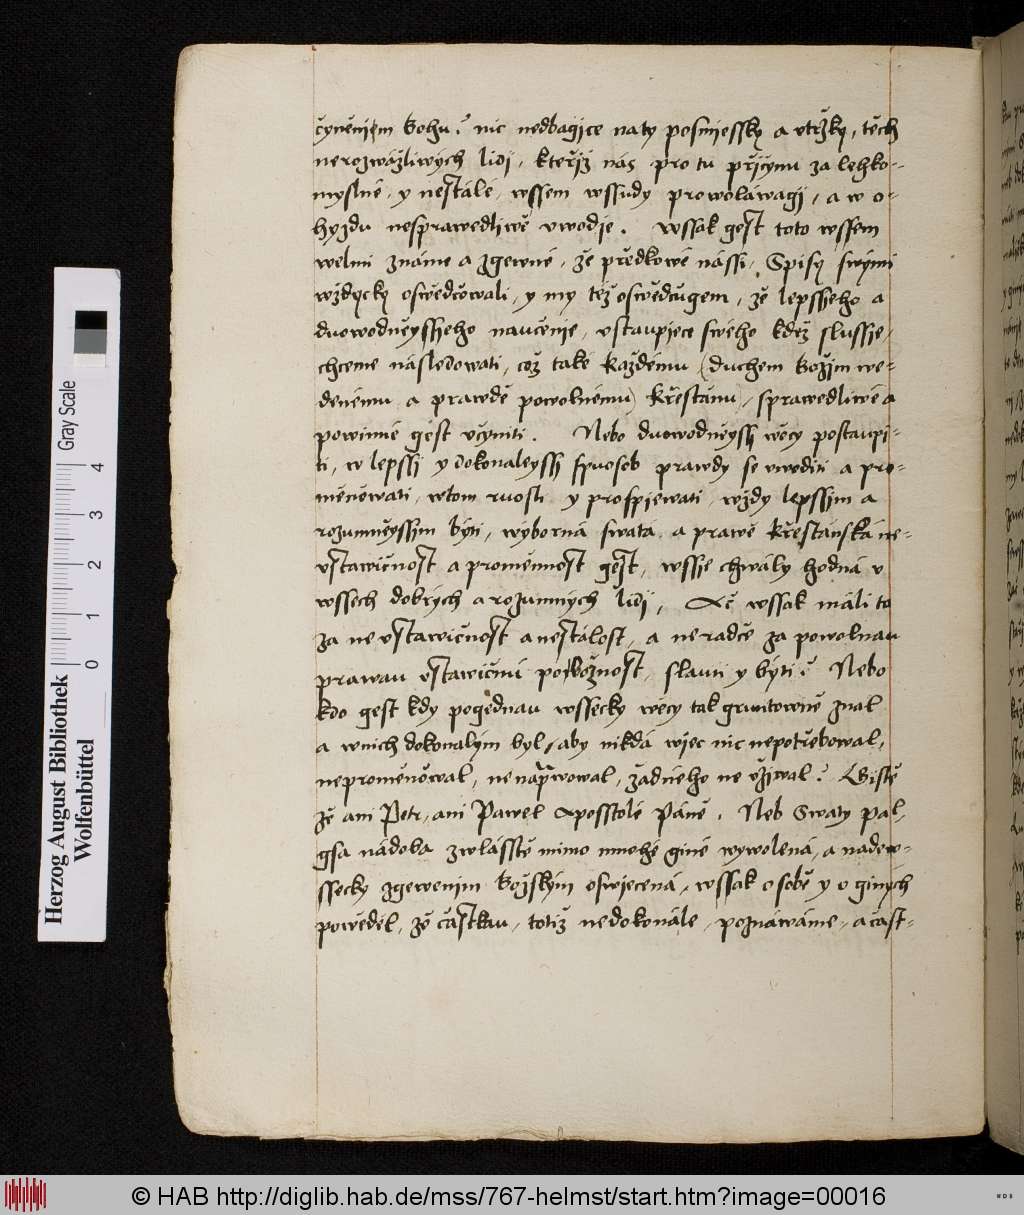 čyněnijm Bohu? nic nedbagijce na ty posmiessky a vtržky, těch
nerozwážliwých lidj, kteřjž nás pro tu přjčynu za lehko-
myslné, y nestálé, wssem wssudy prowoláwagj, a w o-
hyzdu nesprawedliwě vwodie. Wssak gest toto wssem
welmi známe a zgewné, že předkowé nássi, Spisy swými
wždycky oswědčowali, y my též oswědčugem, že lepssieho a
duowodněyssieho naučenie, vstaupiece swého kdež slussie,
chceme následowati, což také každému (duchem Božjm we-
denému a prawdě powolnému) křestanu, sprawedliwé a
powinné gest včyniti. Nebo duowodněyssj wěcy postaupi-
ti, w lepssj y dokonaleyssj spuosob prawdy se vwoditi a pro-
měňowati, w tom ruosti y prospiewati, wždy lepssjm a
rozumněyssjm býti, wýborná swatá a prawě křestánská ne-
vstawičnost a proměnnost gest, wssie chwály hodná v
wssech dobrých a rozumných lidj, Ač wssak máli to
za ne vstawičnost a nestálost, a neradče za powolnau
prawau vstawičnú pobožnost, slauti y býti? Nebo
kdo gest kdy pogednau wssecky wecy tak gruntowně znal
a w nich dokonalým byl, aby nikdá wiec nic nepotřebowal,
neproměňowal, nenaprawowal, žádného ne vžiwal? Gistě
že ani Petr, ani Pawel Aposstolé Páně. Neb Swaty Pal,
gsa nádoba zwlásstě mimo mnohé giné wywolená, a nadew-
ssecky zgewenim Božským oswiecená, wssak o sobě y o giných
powěděl, že částkau, totiž nedokonále, poznáwáme, a část-
Herzog August Bibliothek
Wolfenbüttel
0 1 2 3 4
Gray Scale
© HAB http://diglib.hab.de/mss/767-helmst/start.htm?image=00016